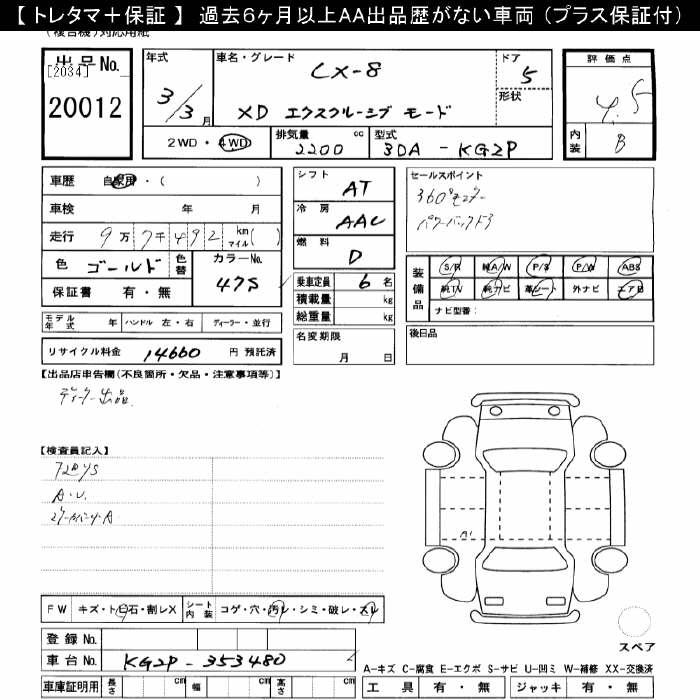 【 トレタマ＋保証 】 過去6ヶ月以上AA出品歴がない車両 (プラス保証付)
(複合機)対応用紙
出品No.
[2034]
20012
年式
3/3月
車名・グレード
CX-8
XD エクスクルーシブ モード
ドア
5
形状
評価点
4.5
内装
B
2WD・4WD
排気量
2200 cc
型式
3DA-KG2P
車歴 自家用・( )
車検 年 月
走行 9万7千492 km マイル( )
色 ゴールド
色替
カラーNo.
47S
保証書 有・無
シフト
AT
冷房
AAC
燃料
D
乗車定員 6 名
積載量 kg
総重量 kg
セールスポイント
360°モニター
装備品
S/R 純A/W P/S P/W ABS
純TV 純ナビ 革シート 外ナビ エアB
ナビ型番:
モデル年式 年
ハンドル 左・右
ディーラー・並行
名変期限
月 日
後日品
リサイクル料金 14660 円 預託済
【出品店申告欄(不良箇所・欠品・注意事項等)】
ディーラー出品
【検査員記入】
A・U
A1
FW キズ・ト・ヒ石・割レX
シート内装 コゲ・穴・汚レ・シミ・破レ・スレ
登録No.
車台No. KG2P-353480
スペア
A-キズ C-腐食 E-エクボ S-サビ U-凹ミ W-補修 XX-交換済
車庫証明用 長さ cm 幅 cm 高さ cm
工具 有・無 ジャッキ 有・無